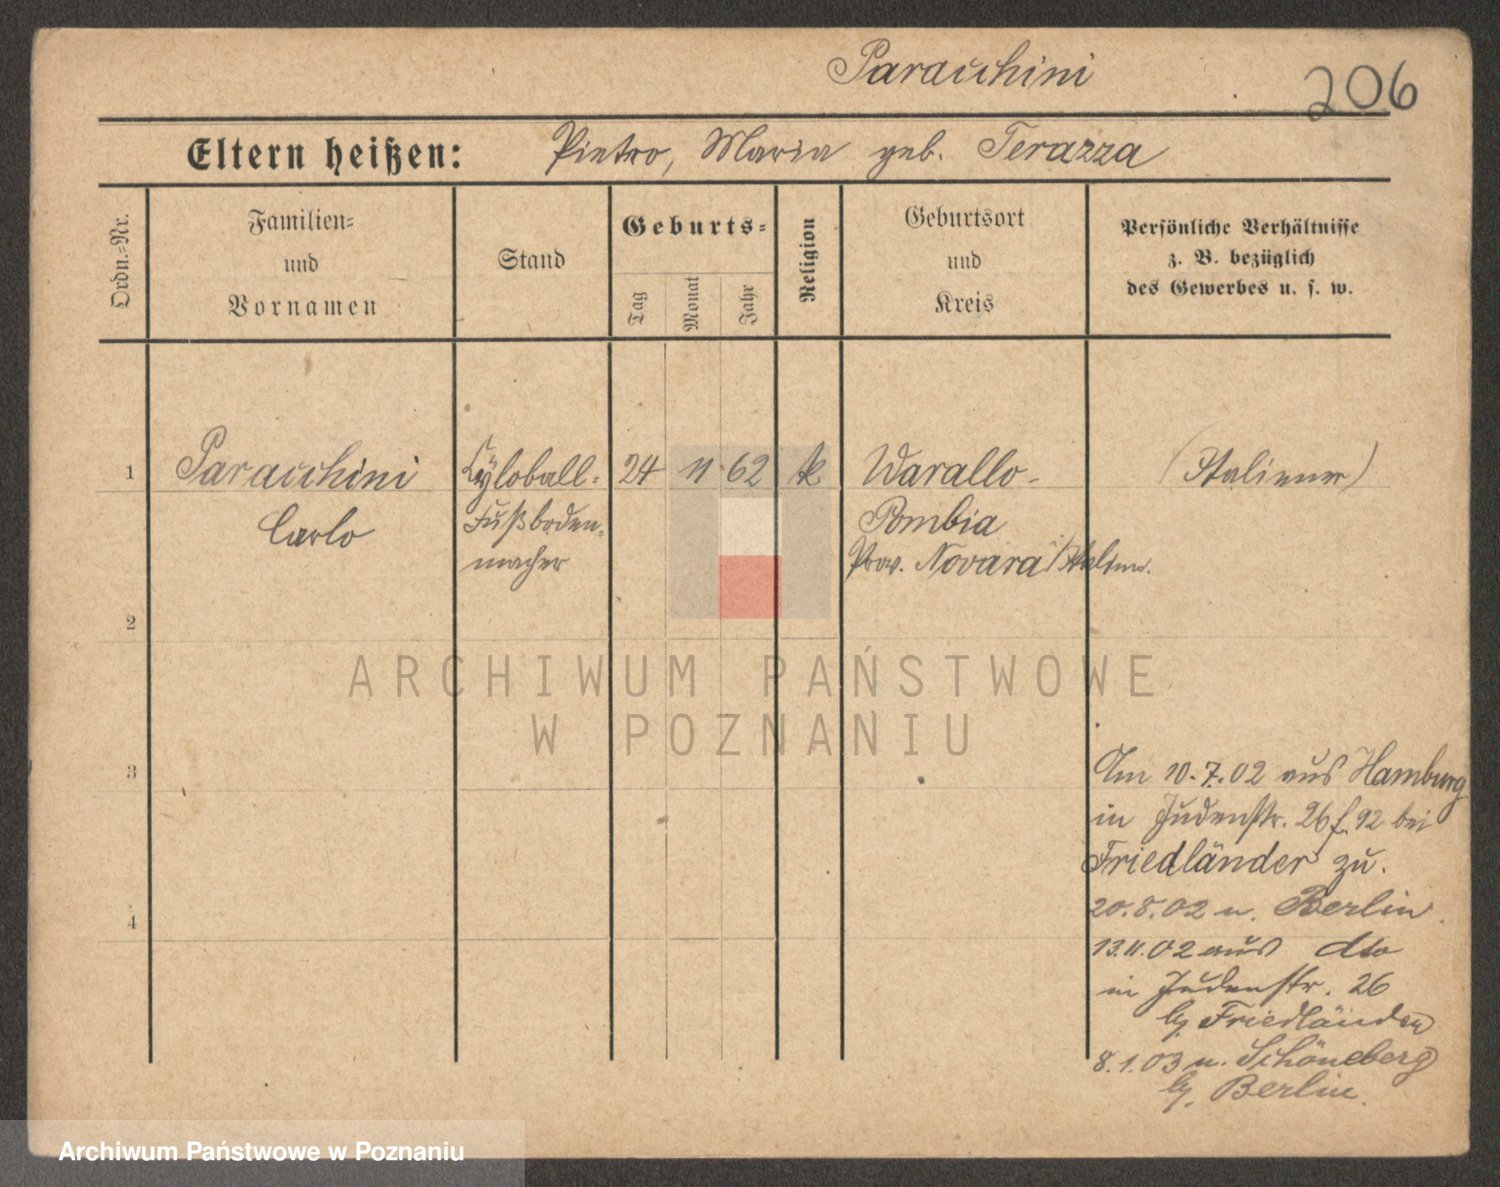 Paracchini
206
Eltern heißen: Pietro, Maria geb. Terazza
Ordn.-Nr.
Familien-
und
Vornamen
Stand
Geburts-
Tag
Monat
Jahr
Religion
Geburtsort
und
Kreis
Persönliche Verhältnisse
z. B. bezüglich
des Gewerbes u. s. w.
1
Paracchini
Carlo
Fußboden-
macher
24 11 62
k
Warallo-
Pombia
Prov. Novara Italien.
(Italiener)
2
3
4
Am 10.7.02 aus Hamburg
in Judenstr. 26 f. 92 bei
Friedländer zu.
20.8.02 n. Berlin.
13.11.02 aus dto
in Judenstr. 26
b/ Friedländer
8.1.03 n. Schöneberg
b/ Berlin.
ARCHIWUM PAŃSTWOWE
W POZNANIU
Archiwum Państwowe w Poznaniu